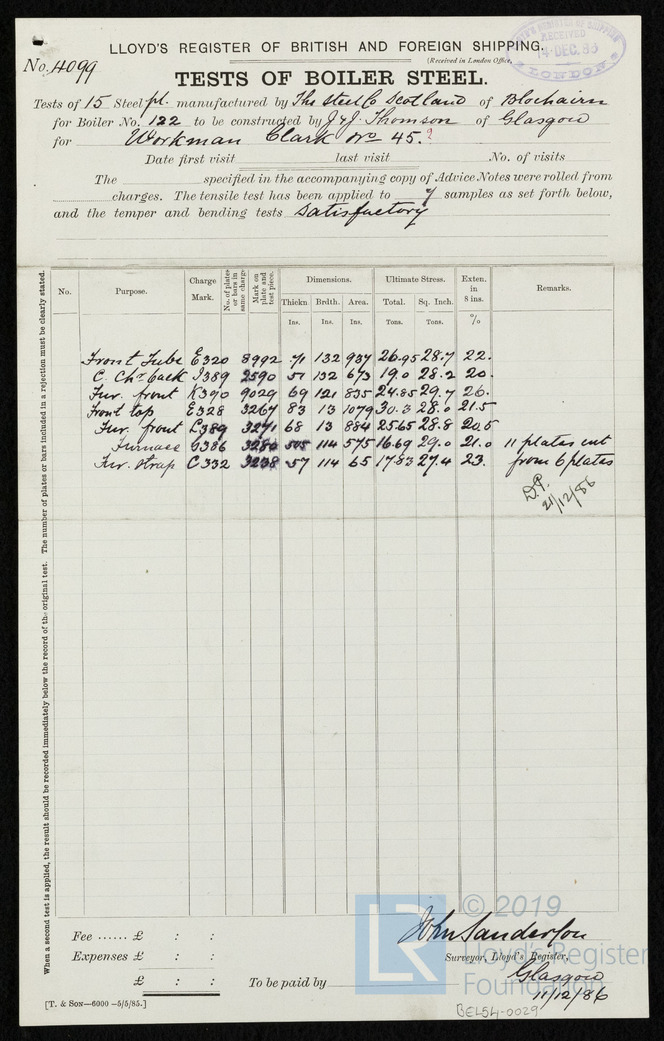 LLOYD'S REGISTER OF BRITISH AND FOREIGN SHIPPING.
RECEIVED
14 DEC. 86
LONDON
No. 4099
(Received in London Office,
TESTS OF BOILER STEEL.
Tests of 15 Steel pl. manufactured by The Steel Co Scotland of Blochairn
for Boiler No. 122 to be constructed by J & J. Thomson of Glasgow
for Workman Clark No 45.?
Date first visit last visit No. of visits
The specified in the accompanying copy of Advice Notes were rolled from
charges. The tensile test has been applied to 7 samples as set forth below,
and the temper and bending tests Satisfactory
When a second test is applied, the result should be recorded immediately below the record of the original test. The number of plates or bars included in a rejection must be clearly stated.
No. Purpose. Charge Mark. No. of plates or bars in same charge Mark on plate and test piece. Dimensions. Ultimate Stress. Exten. in 8 ins. Remarks.
Thickn. Brdth. Area. Total. Sq. Inch.
Ins. Ins. Ins. Tons. Tons. %
Front Tube E320 8992 .71 132 937 26.95 28.7 22.
C. Chr back I389 2590 51 132 673 19.0 28.2 20.
Fur. front K390 9029 69 121 835 24.85 29.7 26.
Front top E328 3267 83 13 1079 30.3 28.0 21.5
Fur. front L389 3271 68 13 884 25.65 28.8 20.5
Furnace G386 3280 505 114 575 16.69 29.0 21.0 11 plates cut
Fur. strap C332 3238 .57 114 65 17.83 27.4 23. from 6 plates
D.P.
21/12/86
© 2019
LR
Lloyd's Register
Foundation
Fee ...... £ : :
Expenses £ : :
£ : :
John Sanderson
Surveyor, Lloyd's Register,
Glasgow
To be paid by
11/12/86
[T. & Son—6000 —5/5/85.]
BEL54-0029